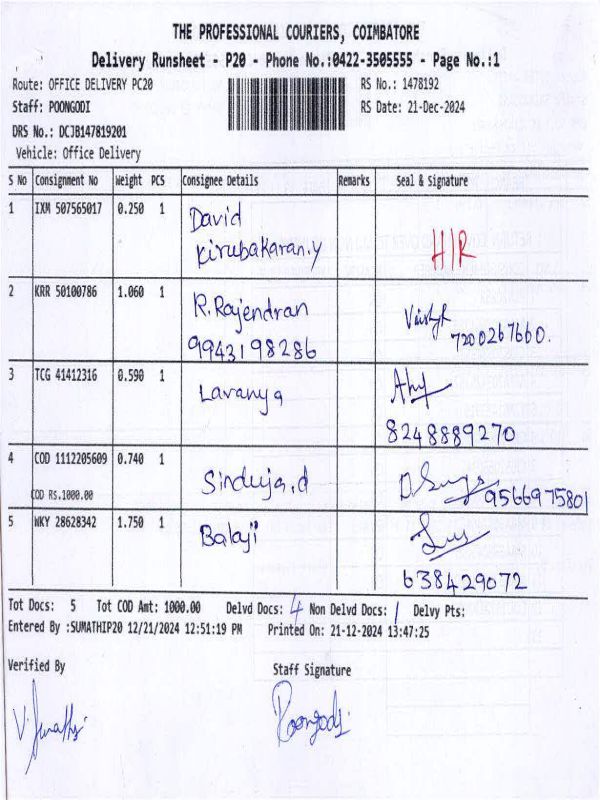 THE PROFESSIONAL COURIERS, COIMBATORE
Delivery Runsheet - P20 - Phone No.:0422-3505555 - Page No.:1
Route: OFFICE DELIVERY PC20 RS No.: 1478192
Staff: POONGODI RS Date: 21-Dec-2024
DRS No.: DCJB147819201
Vehicle: Office Delivery
S No Consignment No Weight PCS Consignee Details Remarks Seal & Signature
1 IXM 507565017 0.250 1 David
Kirubakaran.y H/R
2 KRR 50100786 1.060 1 R.Rajendran
9943198286 7200267660.
3 TCG 41412316 0.590 1 Lavanya
8248889270
4 COD 1112205609 0.740 1 Sinduja.d
COD RS.1000.00 9566975801
5 WKY 28628342 1.750 1 Balaji
638429072
Tot Docs: 5 Tot COD Amt: 1000.00 Delvd Docs: 4 Non Delvd Docs: 1 Delvy Pts:
Entered By :SUMATHIP20 12/21/2024 12:51:19 PM Printed On: 21-12-2024 13:47:25
Verified By Staff Signature
Poongodi